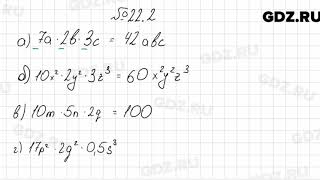 GDZ.RU
№22.2
а) 7a · 2b · 3c = 42abc
б) 10x² · 2y² · 3z³ = 60x²y²z³
в) 10m · 5n · 2q = 100
г) 17p² · 2q² · 0,5s³